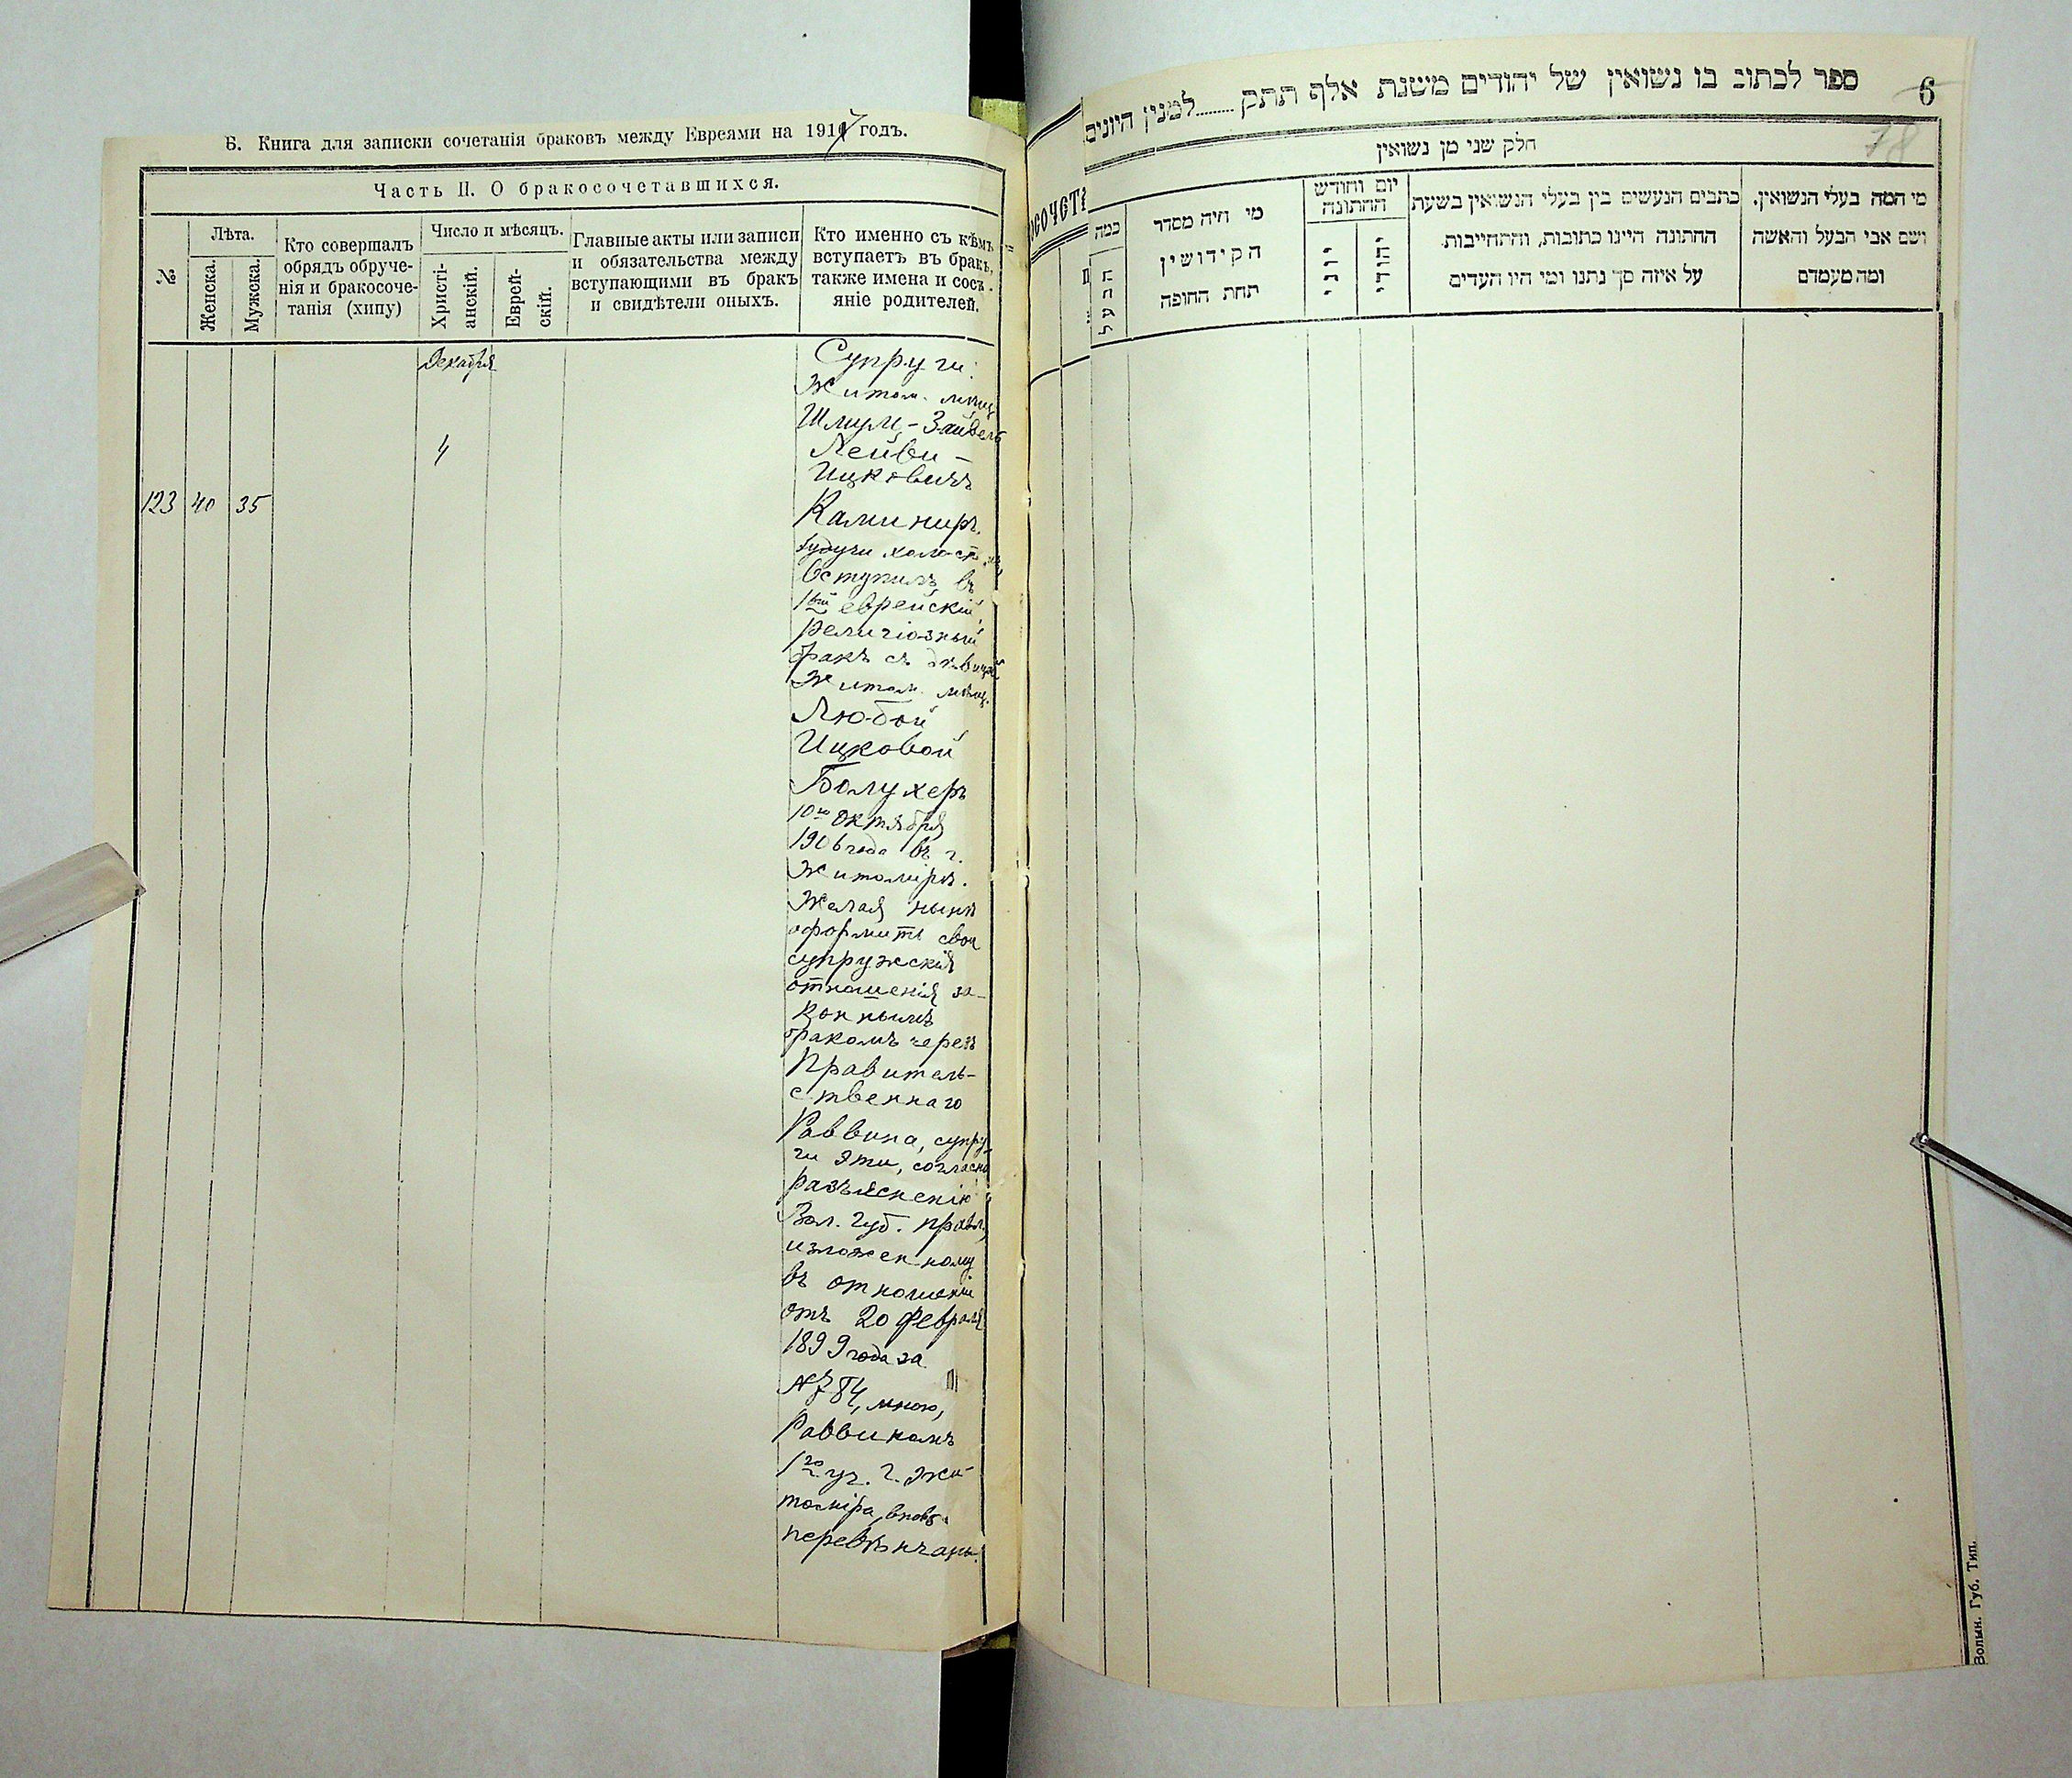 Б. Книга для записки сочетанія браковъ между Евреями на 1917 годъ.
Часть II. О бракосочетавшихся.
№
Лѣта.
Женска.
Мужска.
Кто совершалъ
обрядъ обруче-
нія и бракосоче-
танія (хипу)
Число и мѣсяцъ.
Христі-
анскій.
Еврей-
скій.
Главные акты или записи
и обязательства между
вступающими въ бракъ
и свидѣтели оныхъ.
Кто именно съ кѣмъ
вступаетъ въ бракъ,
также имена и сост.
яніе родителей.
Декабря
4
123 40 35
Супруги:
Житом. мѣщ.
Шлум-Зайвель
Лейви-
Ицковичъ
Каминиръ,
будучи холостымъ
вступилъ въ
1ый еврейскій
религіозный
бракъ съ дѣвицей
Житом. мѣщ.
Любой
Ицковой
Болухеръ
10го октября
1906 года въ г.
Житомірѣ.
Желая нынѣ
оформить свои
супружскія
отношенія за-
коннымъ
бракомъ черезъ
Правитель-
ственнаго
Раввина, супру-
ги эти, согласно
разъясненію
Вол. Губ. правл.,
изложенному
въ отношеніи
отъ 20 февраля
1899 года за
№784, мною,
Раввиномъ
1го уч. г. Жи-
томіра, вновь
перевѣнчаны.
ספר לכתוב בו נשואין של יהודים משנת אלף תתק........למנין היונים
6
78
חלק שני מן נשואין
מי המה בעלי הנשואין.
ושם אבי הבעל והאשה
ומה מעמדם
כתבים הנעשים בין בעלי הנשואין בשעת
החתונה היינו כתובות, והתחייבות
על איזה סך נתנו ומי היו העדים
יום וחודש
החתונה
יהודי
יוני
מי היה מסדר
הקידושין
תחת החופה
כמה
הבעל
осочета
Волын. Губ. Тип.